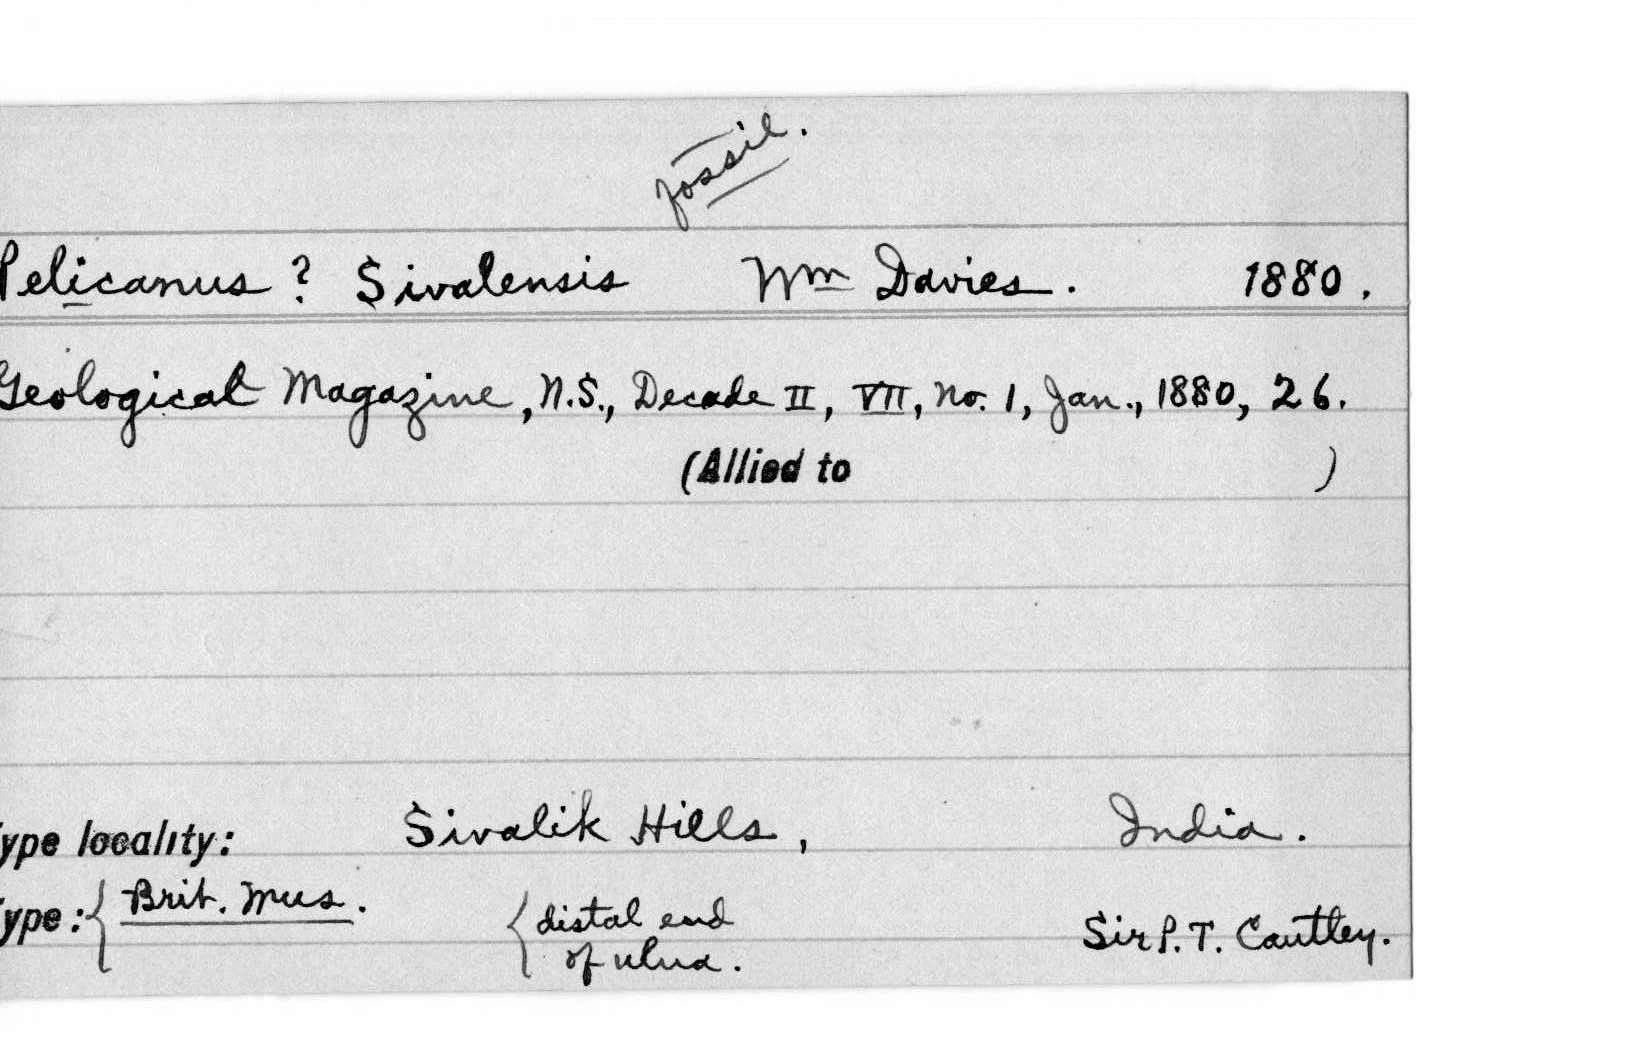 fossil.
Pelicanus ? Sivalensis Wm Davies. 1880.
Geological Magazine, N.S., Decade II, VII, no. 1, Jan., 1880, 26.
(Allied to )
ype locality: Sivalik Hills, India.
ype: { Brit. Mus. { distal end Sir P. T. Cautley.
of ulna.